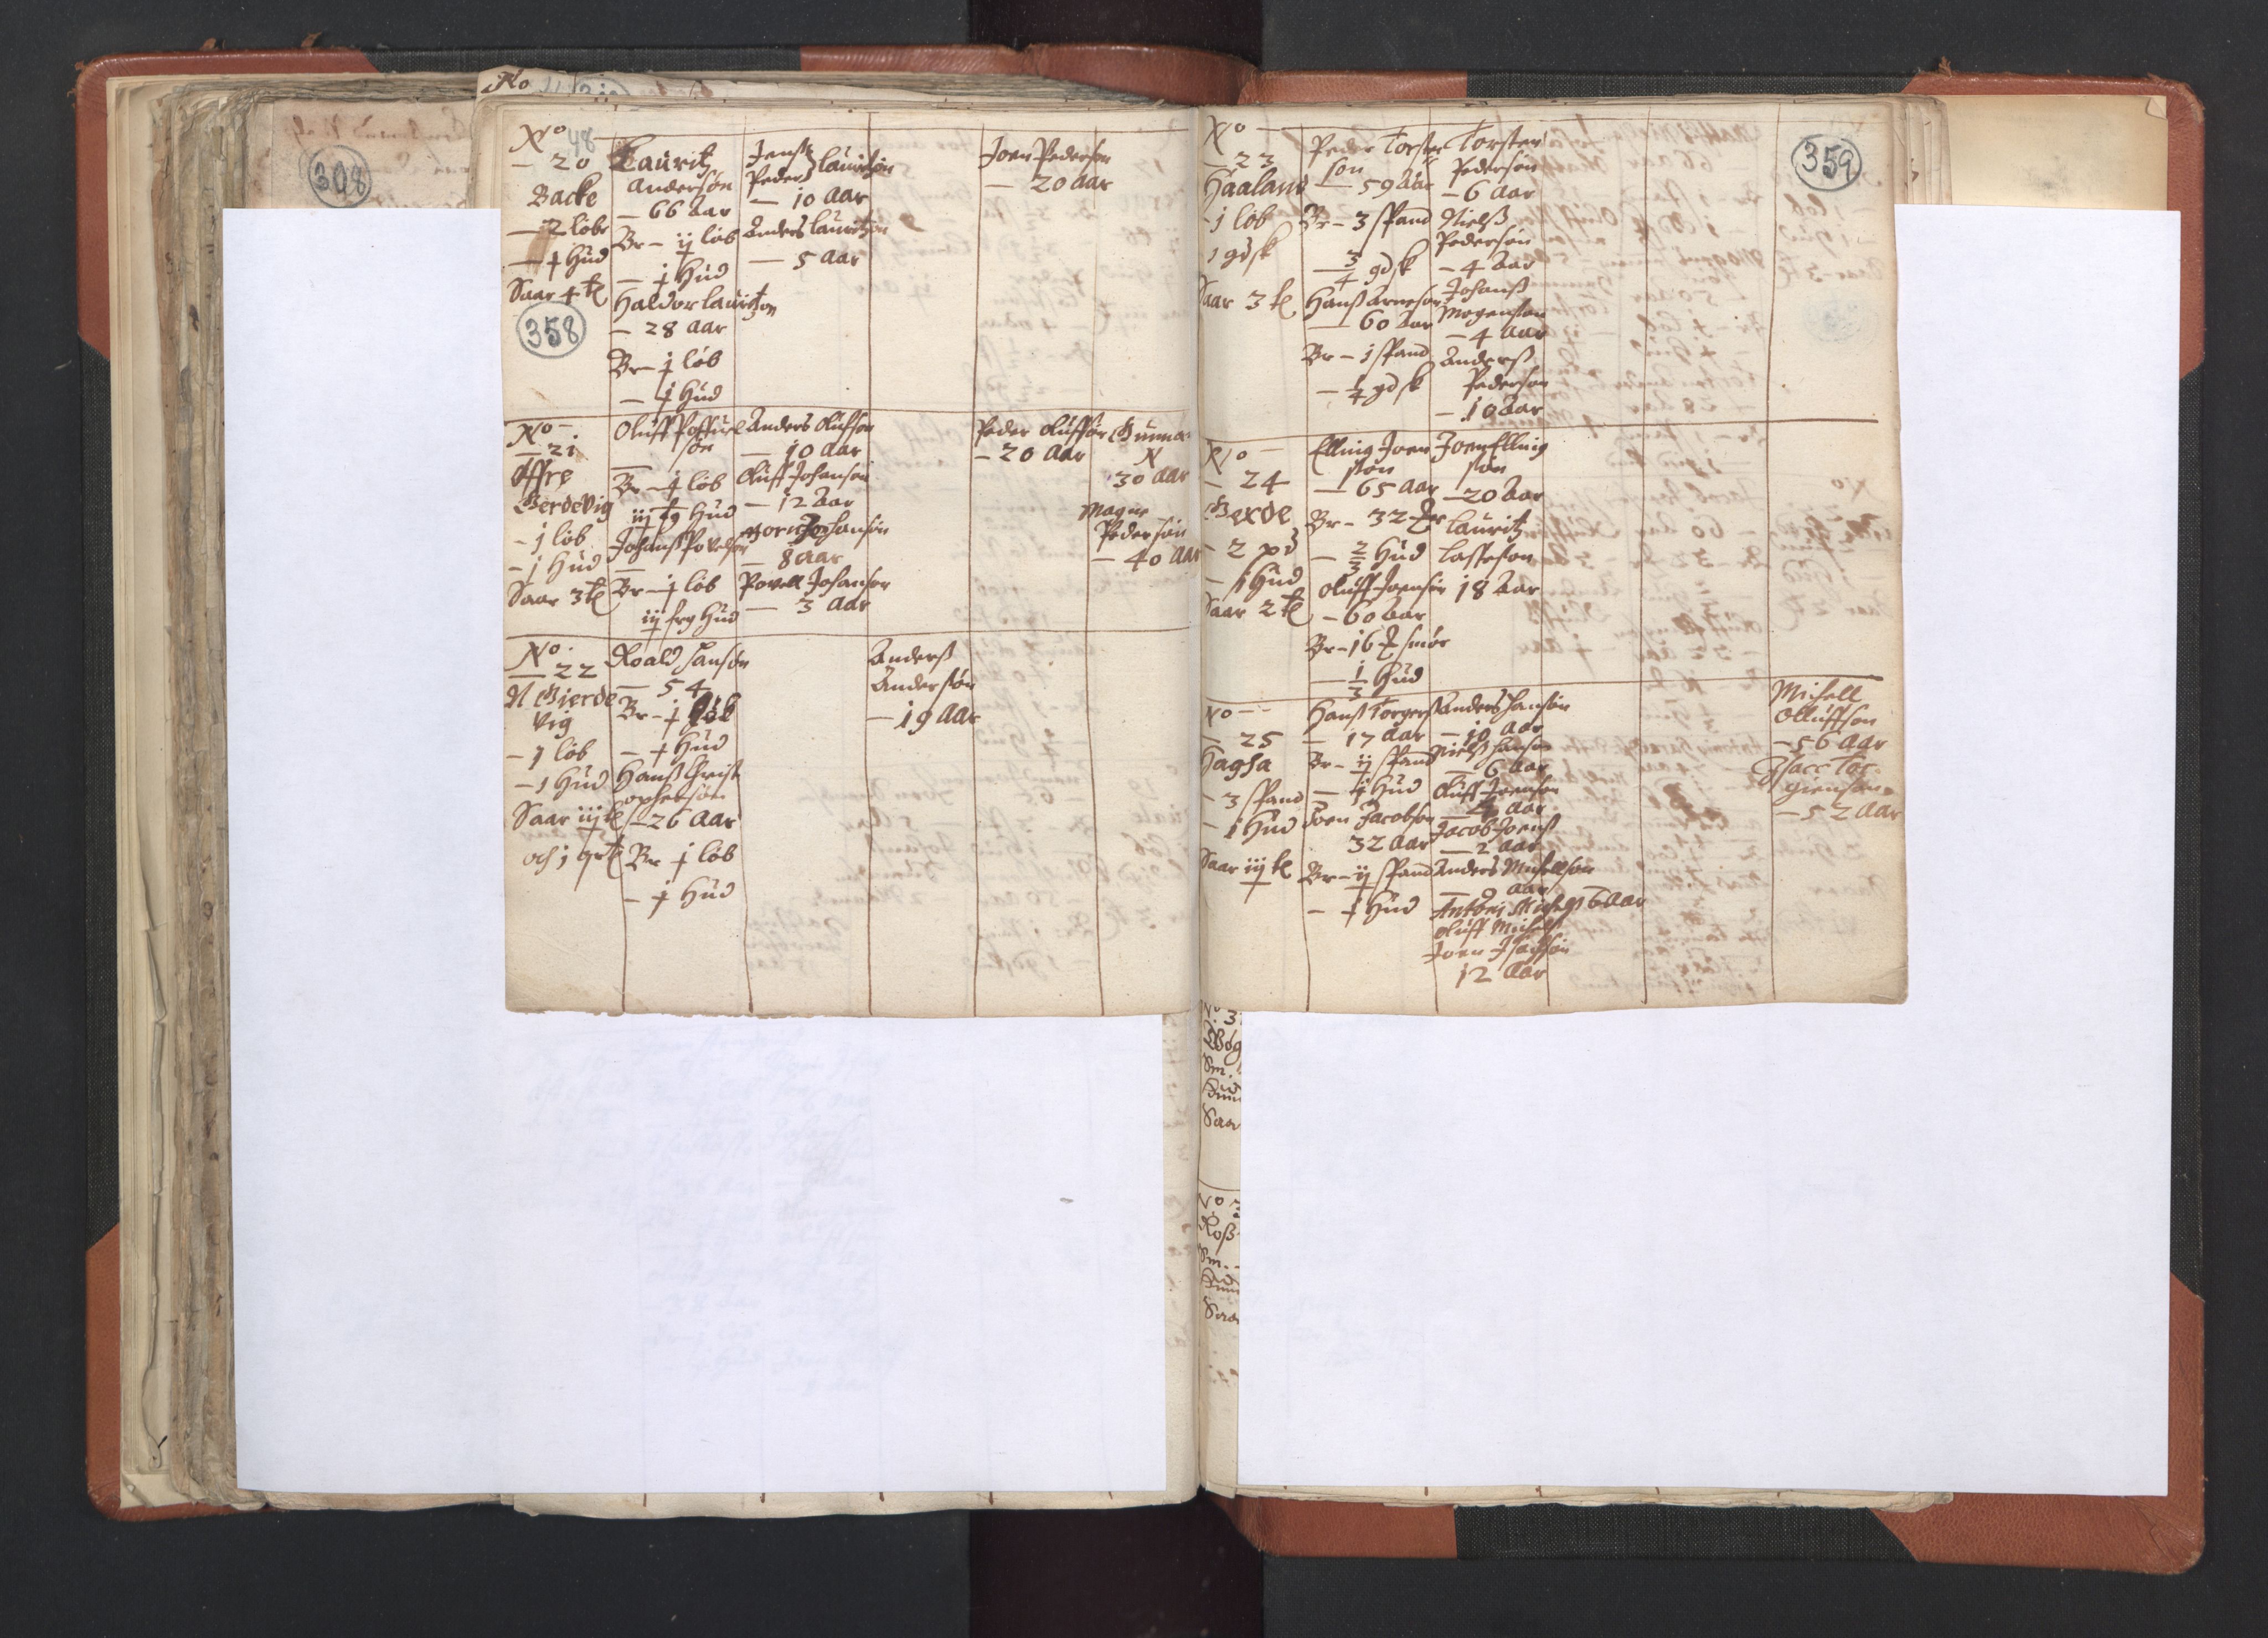 308
No
48
No
– 20
Backe
– 2 løbe
– 1 Hud
Saar 4 tl
358
Lauritz
Andersøn
– 66 Aar
Br – ij løb
– j Hud
Haldor lauritzon
– 28 Aar
Br – j løb
– j Hud
Jenss lauritsøn
Peders
– 10 Aar
Anders lauritzøn
– 5 Aar
Joen Pedersøn
– 20 Aar
No –
– 21
Offre
Gerdevig
– j løb
– j Hud
Saar 3 tl
Oluff
søn
Br – j løb
Hud
Johanss Povelsøn
Br – j løb
iij Hud
Anders Olufsøn
– 10 Aar
Oluff Johansøn
– 12 Aar
Johansøn
– 8 aar
Povell Johansøn
– 3 Aar
Peder Oluffsøn
– 20 Aar
Gunna
N
30 Aar
Magne
Pedersøn
– 40 Aar
No
– 22
N Gierde
vig
– j løb
– 1 Hud
Saar iij tl
och j qrt
Roald Hansøn
– 54
Br – j løb
– j Hud
Hanss Christ
ophersøn
– 26 Aar
Br j løb
– j Hud
Anderss
Andersøn
– 19 Aar
359
No –
– 23
Haaland
– j løb
1 gdsk
Saar 3 tl
Peder Torster
søn
– 59 Aar
Br – 3 spand
– 3/4 gdsk
Hanss Arnesøn
– 60 Aar
Br – 1 spand
– 1/4 gdsk
Torster
Pedersøn
– 6 Aar
Nielss
Pedersøn
– 4 Aar
Johanss
Mogensøn
– 4 Aar
Anderss
Pedersøn
– 10 Aar
No –
– 24
Gerde
– 2 pd
– 1 Hud
Saar 2 tl
Elling Joen
søn
– 65 Aar
Br – 32
– 2/3 Hud
Oluff Joensøn
– 60 Aar
Br – 16 smør
– 1/3 Hud
Joen Elling
søn
– 20 Aar
Lauritz
Lassesøn
18 Aar
No –
– 25
Hagha
– 3 spand
– 1 Hud
Saar iij tl
Hanss Torgerss
– 17 Aar
Br – ij spand
– j Hud
Joen Jacobsøn
32 Aar
Br – ij spand
– j Hud
Anders Hansøn
– 10 Aar
Nielss Hansøn
– 6 Aar
Oluff Joensøn
– 4 Aar
Jacob Joenss
– 2 Aar
Anders Michellsøn
– 9 Aar
Antoni Michelss 6 Aar
Oluff Michelss
Joen Isachsøn
12 Aar
Michell
Olluffsøn
– 56 Aar
Isacc Tor
giensøn
– 52 Aar
No 3
Bøg
Sm.
Hud
Saar
No 3
Ross
Sm. –
Hud
Saar